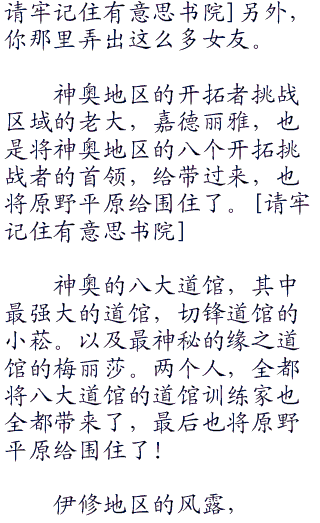 请牢记住有意思书院]另外，
你那里弄出这么多女友。
神奥地区的开拓者挑战
区域的老大，嘉德丽雅，也
是将神奥地区的八个开拓挑
战者的首领，给带过来，也
将原野平原给围住了。[请牢
记住有意思书院]
神奥的八大道馆，其中
最强大的道馆，切锋道馆的
小菘。以及最神秘的缘之道
馆的梅丽莎。两个人，全都
将八大道馆的道馆训练家也
全都带来了，最后也将原野
平原给围住了！
伊修地区的风露，